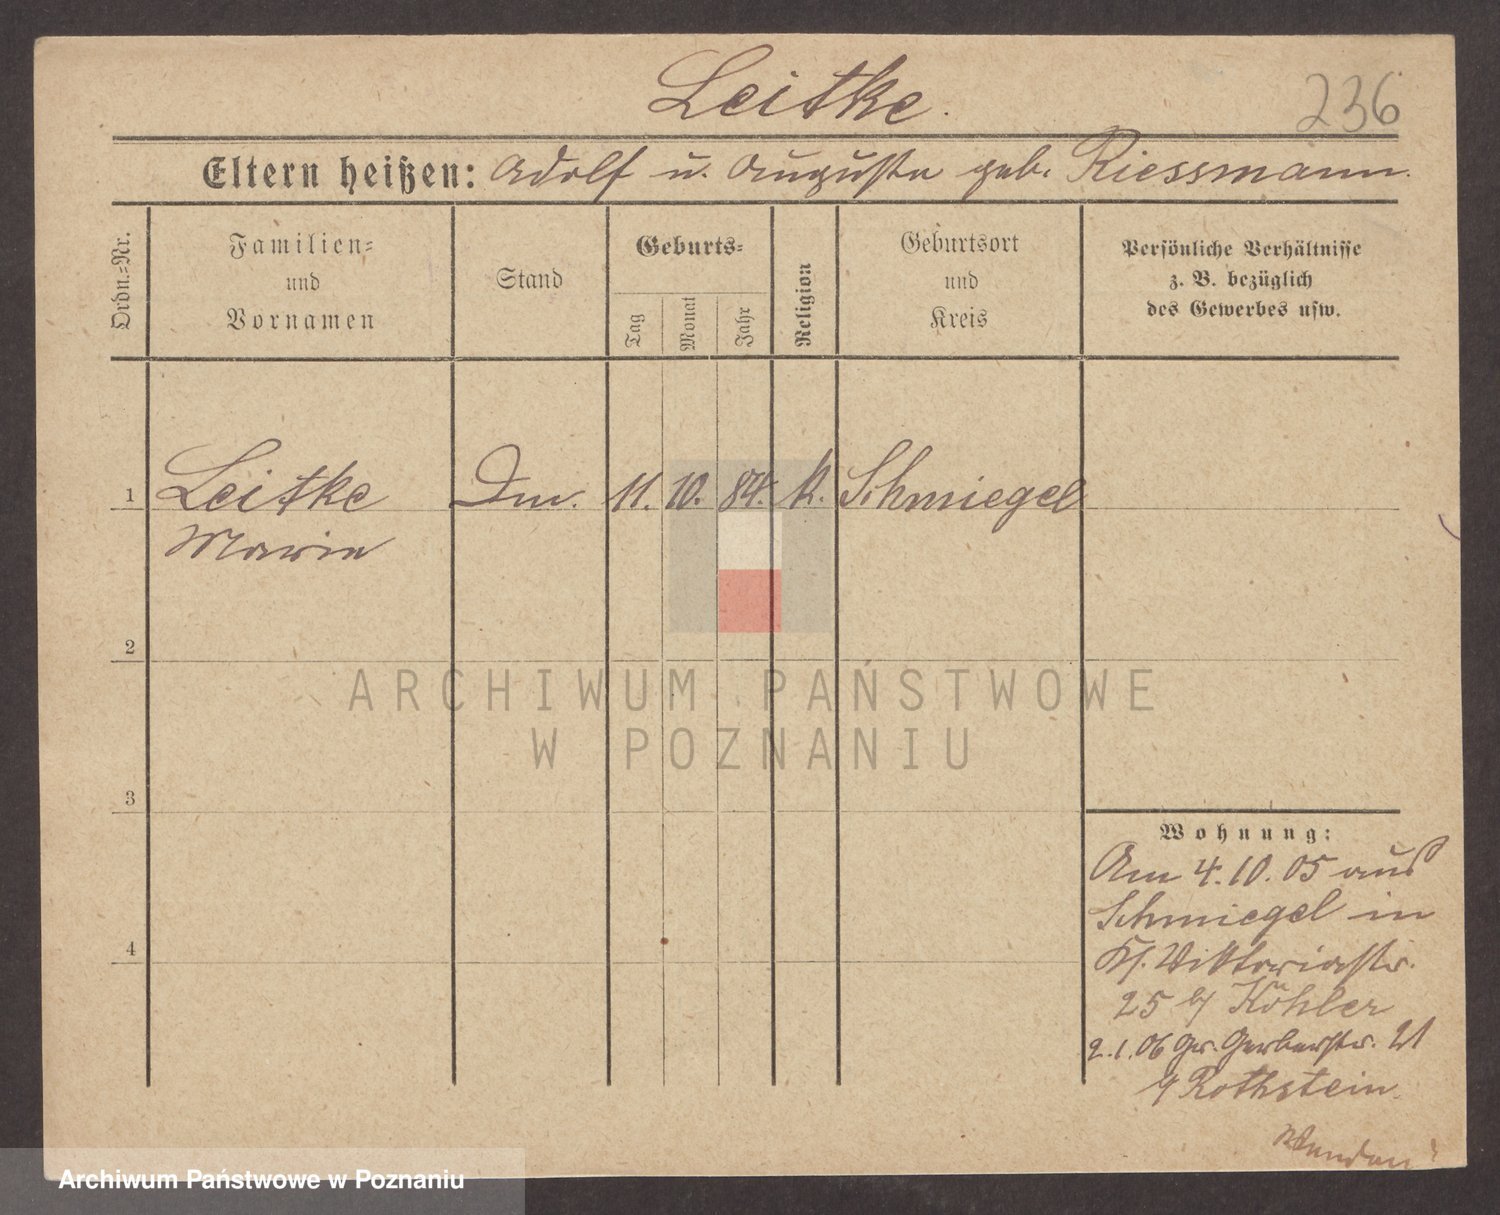 Leitke.
236
Eltern heißen: Adolf u. Auguste geb. Riessmann.
Ordn.=Nr.
Familien=
und
Vornamen
Stand
Geburts=
Tag
Monat
Jahr
Religion
Geburtsort
und
Kreis
Persönliche Verhältnisse
z. B. bezüglich
des Gewerbes usw.
1 Leitke 11. 10. 84. k. Schmiegel
Marie
2
3
4
Wohnung:
Am 4.10.05 aus
Schmiegel in
Kl. Viktoriastr.
25 b/ Köhler
2.1.06 Gr. Gerberstr. 21
b/ Rothstein.
ARCHIWUM PAŃSTWOWE
W POZNANIU
Archiwum Państwowe w Poznaniu